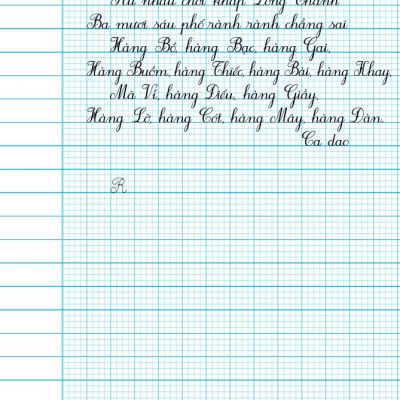 Rủ nhau chơi khắp Long Thành
Ba mươi sáu phố rành rành chẳng sai
Hàng Bồ, hàng Bạc, hàng Gai,
Hàng Buồm, hàng Thiếc, hàng Bài, hàng Khay,
Mã Vĩ, hàng Điếu, hàng Giầy,
Hàng Lờ, hàng Cót, hàng Mây, hàng Đàn.
Ca dao
R